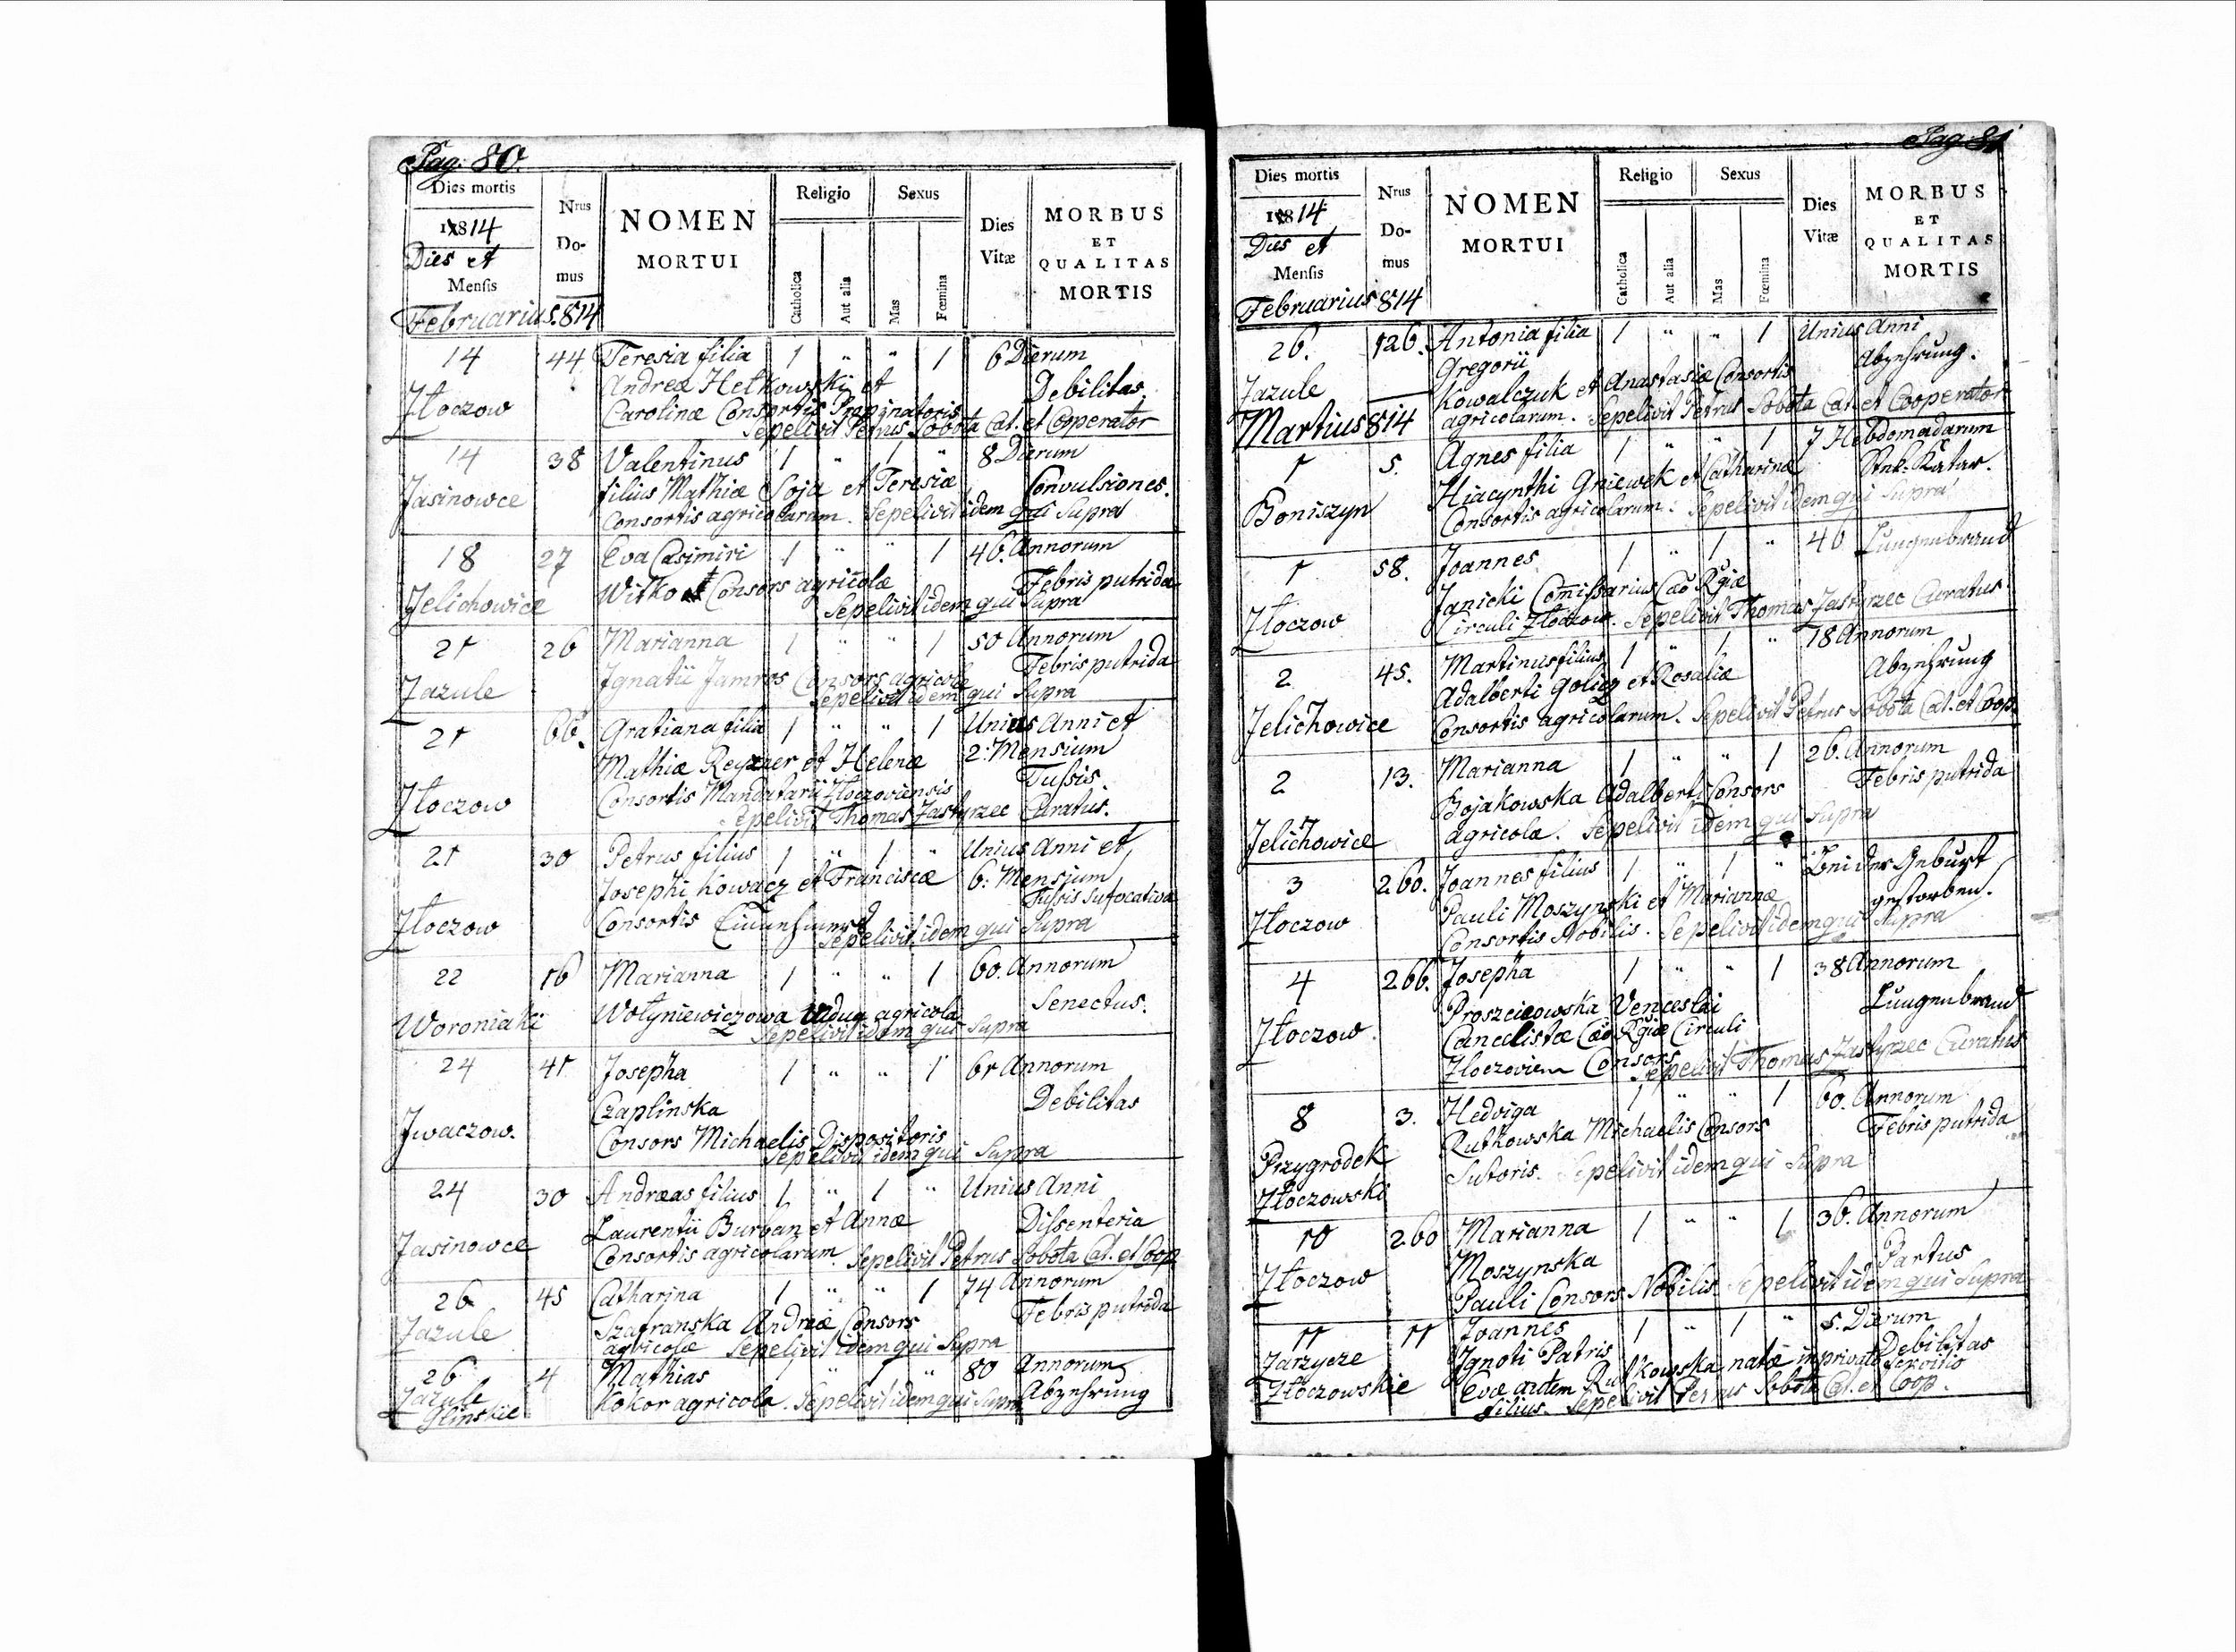 Pag: 80.
Dies mortis
1814
Dies et
Mensis
Februarius.814
Nrus
Do-
mus
NOMEN
MORTUI
Religio
Catholica
Aut alia
Sexus
Mas
Fœmina
Dies
Vitæ
MORBUS
ET
QUALITAS
MORTIS
14 44 Teresia filia 1 " " 1 6 Dierum
Andreæ Hetkowski et Debilitas.
Złoczow Carolinæ Consortis Propinatoris
Sepelivit Petrus Sobota Cat. et Cooperator
14 38 Valentinus 1 " 1 " 8 Dierum
Jasinowce filius Mathiæ Soja et Teresiæ Convulsiones.
Consortis agricolarum. Sepelivit idem qui Supra
18 27 Eva Casimiri 1 " " 1 46. Annorum
Jelichowice Witko Consors agricolæ Febris putrida
Sepelivit idem qui Supra
21 26 Marianna 1 " " 1 50 Annorum
Zazule Ignatii Jamros Consors agricolæ Febris putrida
Sepelivit idem qui Supra
21 66. Gratiana filia 1 " " 1 Unius Anni et
Mathiæ Reyzner et Helenæ 2: Mensium
Złoczow Consortis Mandatarii Złoczoviensis Tussis.
Sepelivit Thomas Zastyrzec Curatus.
21 30 Petrus filius 1 " 1 " Unius Anni et
Josephi Kowacz et Franciscæ 6: Mensium
Złoczow Consortis Tussis Sufocativa
Sepelivit idem qui Supra
22 16 Marianna 1 " " 1 60. Annorum
Woroniaki Wołyniewiczowa Vidua agricola Senectus.
Sepelivit idem qui Supra
24 41 Josepha 1 " " 1 61 Annorum
Czaplinska Debilitas
Jwaczow. Consors Michaelis Dispositoris
Sepelivit idem qui Supra
24 30 Andreas filius 1 " 1 " Unius Anni
Laurentii Burban et Annæ Dissenteria
Jasinowce Consortis agricolarum. Sepelivit Petrus Sobota Cat. et Coop
26 45 Catharina 1 " " 1 74 Annorum
Zazule Szafranska Andreæ Consors Febris putrida
agricolæ Sepelivit idem qui Supra
26 4 Mathias 1 " 1 " 80 Annorum
Zazule Kokor agricola. Sepelivit idem qui Supra Abzehrung
Glinskie
Pag: 81
Dies mortis
1814
Dies et
Mensis
Februarius 814
Nrus
Do-
mus
NOMEN
MORTUI
Religio
Catholica
Aut alia
Sexus
Mas
Fœmina
Dies
Vitæ
MORBUS
ET
QUALITAS
MORTIS
26. 126. Antonia filia 1 " " 1 Unius Anni
Gregorii Abzehrung.
Zazule Kowalczuk et Anastasiæ Consortis
agricolarum. Sepelivit Petrus Sobota Cat. et Cooperator
Martius 814
1 5. Agnes filia 1 " " 1 7 Hebdomadarum
Hiacynthi Gniewek et Catharinæ Katar.
Boniszyn Consortis agricolarum. Sepelivit idem qui Supra
1 58. Joannes 1 " 1 " 46 Lungenbrand
Janicki Comissarius Cæo Rgiæ
Złoczow Circuli Złoczow. Sepelivit Thomas Zastyrzec Curatus.
2 45. Martinus filius 1 " 1 " 18 Annorum
Adalberti Golicz et Rosaliæ Abzehrung
Jelichowice Consortis agricolarum. Sepelivit Petrus Sobota Cat. et Coop.
2 13. Marianna 1 " " 1 26. Annorum
Bojakowska Adalberti Consors Febris putrida
Jelichowice agricolæ. Sepelivit idem qui Supra
3 260. Joannes filius 1 " 1 " bei der Geburt
Pauli Moszynski et Mariannæ gestorben.
Złoczow Consortis Nobilis. Sepelivit idem qui Supra
4 266. Josepha 1 " " 1 38 Annorum
Proszeicowska Venceslai Lungenbrand
Złoczow. Cancelistæ Cæo Rgiæ Circuli
Złoczovien Consors
Sepelivit Thomas Zastyrzec Curatus
8 3. Hedviga 1 " " 1 60. Annorum
Rutkowska Michaelis Consors Febris putrida
Przygrodek Sutoris. Sepelivit idem qui Supra
Złoczowski
10 260 Marianna 1 " " 1 36. Annorum
Moszynska Partus
Złoczow Pauli Consors Nobilis. Sepelivit idem qui Supra
11 11 Joannes 1 " 1 " 5. Dierum
Zarzycze Ignoti Patris Debilitas
Złoczowskie Evæ autem Rutkowska natæ in privato servitio
filius. Sepelivit Petrus Sobota Cat. et Coop.